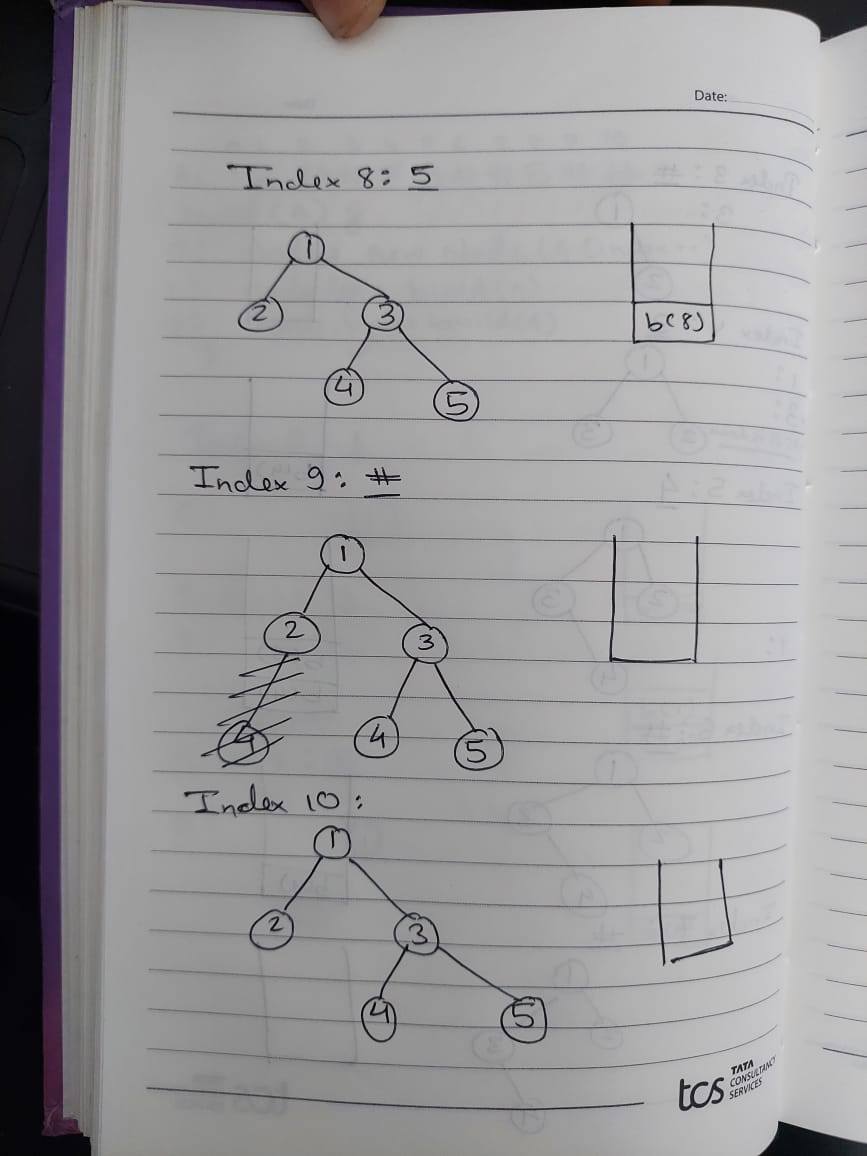 Date:
Index 8: 5
1
2 3
b(8)
4 5
Index 9: #
1
2 3
4 4 5
Index 10:
1
2 3
4 5
tcs TATA
CONSULTANCY
SERVICES